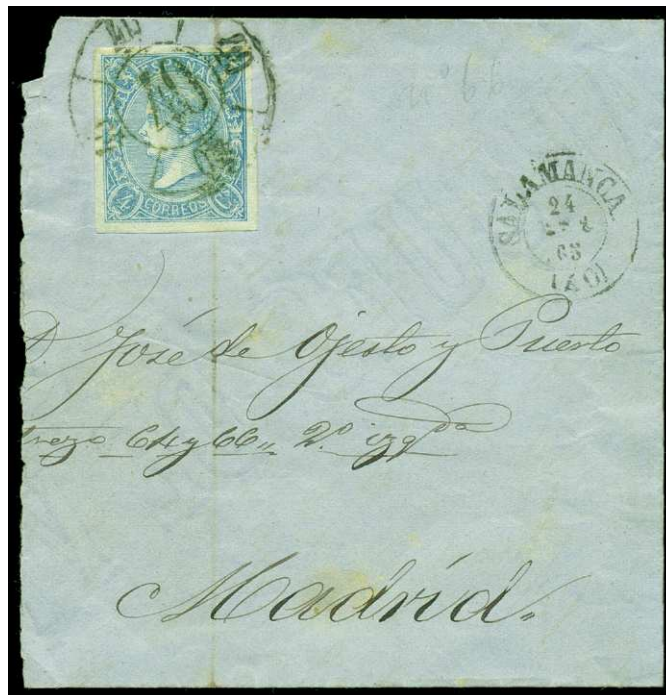 nº 69
40
4 CORREOS Cs
SALAMANCA
24
65
(40)
D. José de Ojesto y Puerto
64 y 66,, 2º izqda
Madrid.